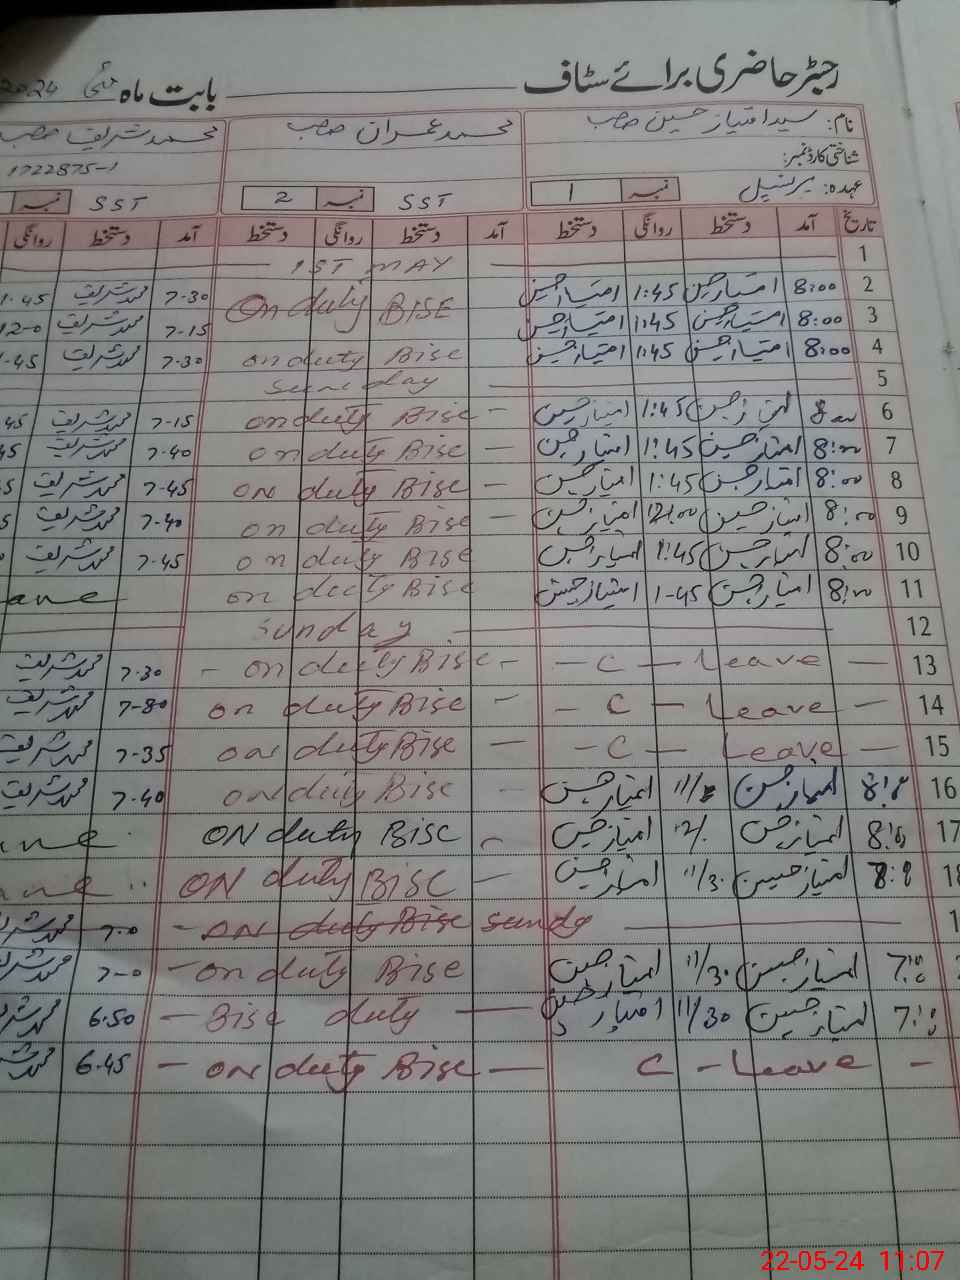 رجسٹر حاضری برائے سٹاف بابت ماہ مئی 2024
نام: سید امتیاز حسین صاحب محمد عمران صاحب محمد شریف صاحب
شناختی کارڈ نمبر: 1722875-1
عہدہ: پرنسپل نمبر 1 SST نمبر 2 SST نمبر
تاریخ آمد دستخط روانگی دستخط آمد دستخط روانگی دستخط آمد دستخط روانگی
1 1ST MAY
2 8:00 امتیاز حسین 1:45 امتیاز حسین On duty BISE 7-30 محمد شریف 1-45
3 8:00 امتیاز حسین 1:45 امتیاز حسین 7-15 محمد شریف 12-0
4 8:00 امتیاز حسین 1:45 امتیاز حسین on duty Bise 7-30 محمد شریف 1-45
5 sunday
6 8:00 امتیاز حسین 1:45 امتیاز حسین - on duty Bise 7-15 محمد شریف 45
7 8:00 امتیاز حسین 1:45 امتیاز حسین - on duty Bise 7-40 محمد شریف 45
8 8:00 امتیاز حسین 1:45 امتیاز حسین - on duty Bise 7-45 محمد شریف
9 8:00 امتیاز حسین 12:00 امتیاز حسین - on duty Bise 7-40 محمد شریف
10 8:00 امتیاز حسین 1:45 امتیاز حسین on duty Bise 7-45 محمد شریف
11 8:00 امتیاز حسین 1-45 امتیاز حسین on duty Bise
12 Sunday
13 - C - Leave - - on duty Bise - 7-30 محمد شریف
14 - C - Leave - on duty Bise - 7-80 محمد شریف
15 - C - Leave - on duty Bise - 7-35 محمد شریف
16 امتیاز حسین امتیاز حسین on duty Bise - 7-40 محمد شریف
17 8:00 امتیاز حسین امتیاز حسین ON duty Bise
18 امتیاز حسین 11/30 امتیاز حسین ON duty BISE -
1 sundy - on duty Bise 7-0 محمد شریف
امتیاز حسین 11/30 امتیاز حسین - on duty Bise 7-0 محمد شریف
امتیاز حسین 11/30 امتیاز حسین - Bise duty - 6-50 محمد شریف
- C - Leave - on duty Bise - 6-45 محمد شریف
22-05-24 11:07